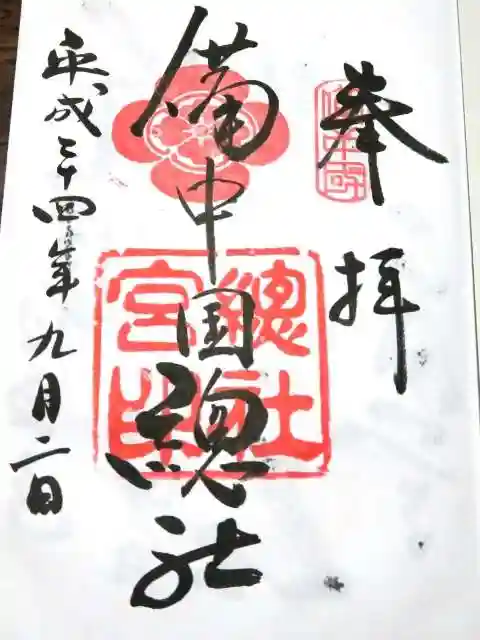 奉拝
備中国
備中国總社
總社宮印
平成二十四年九月二日